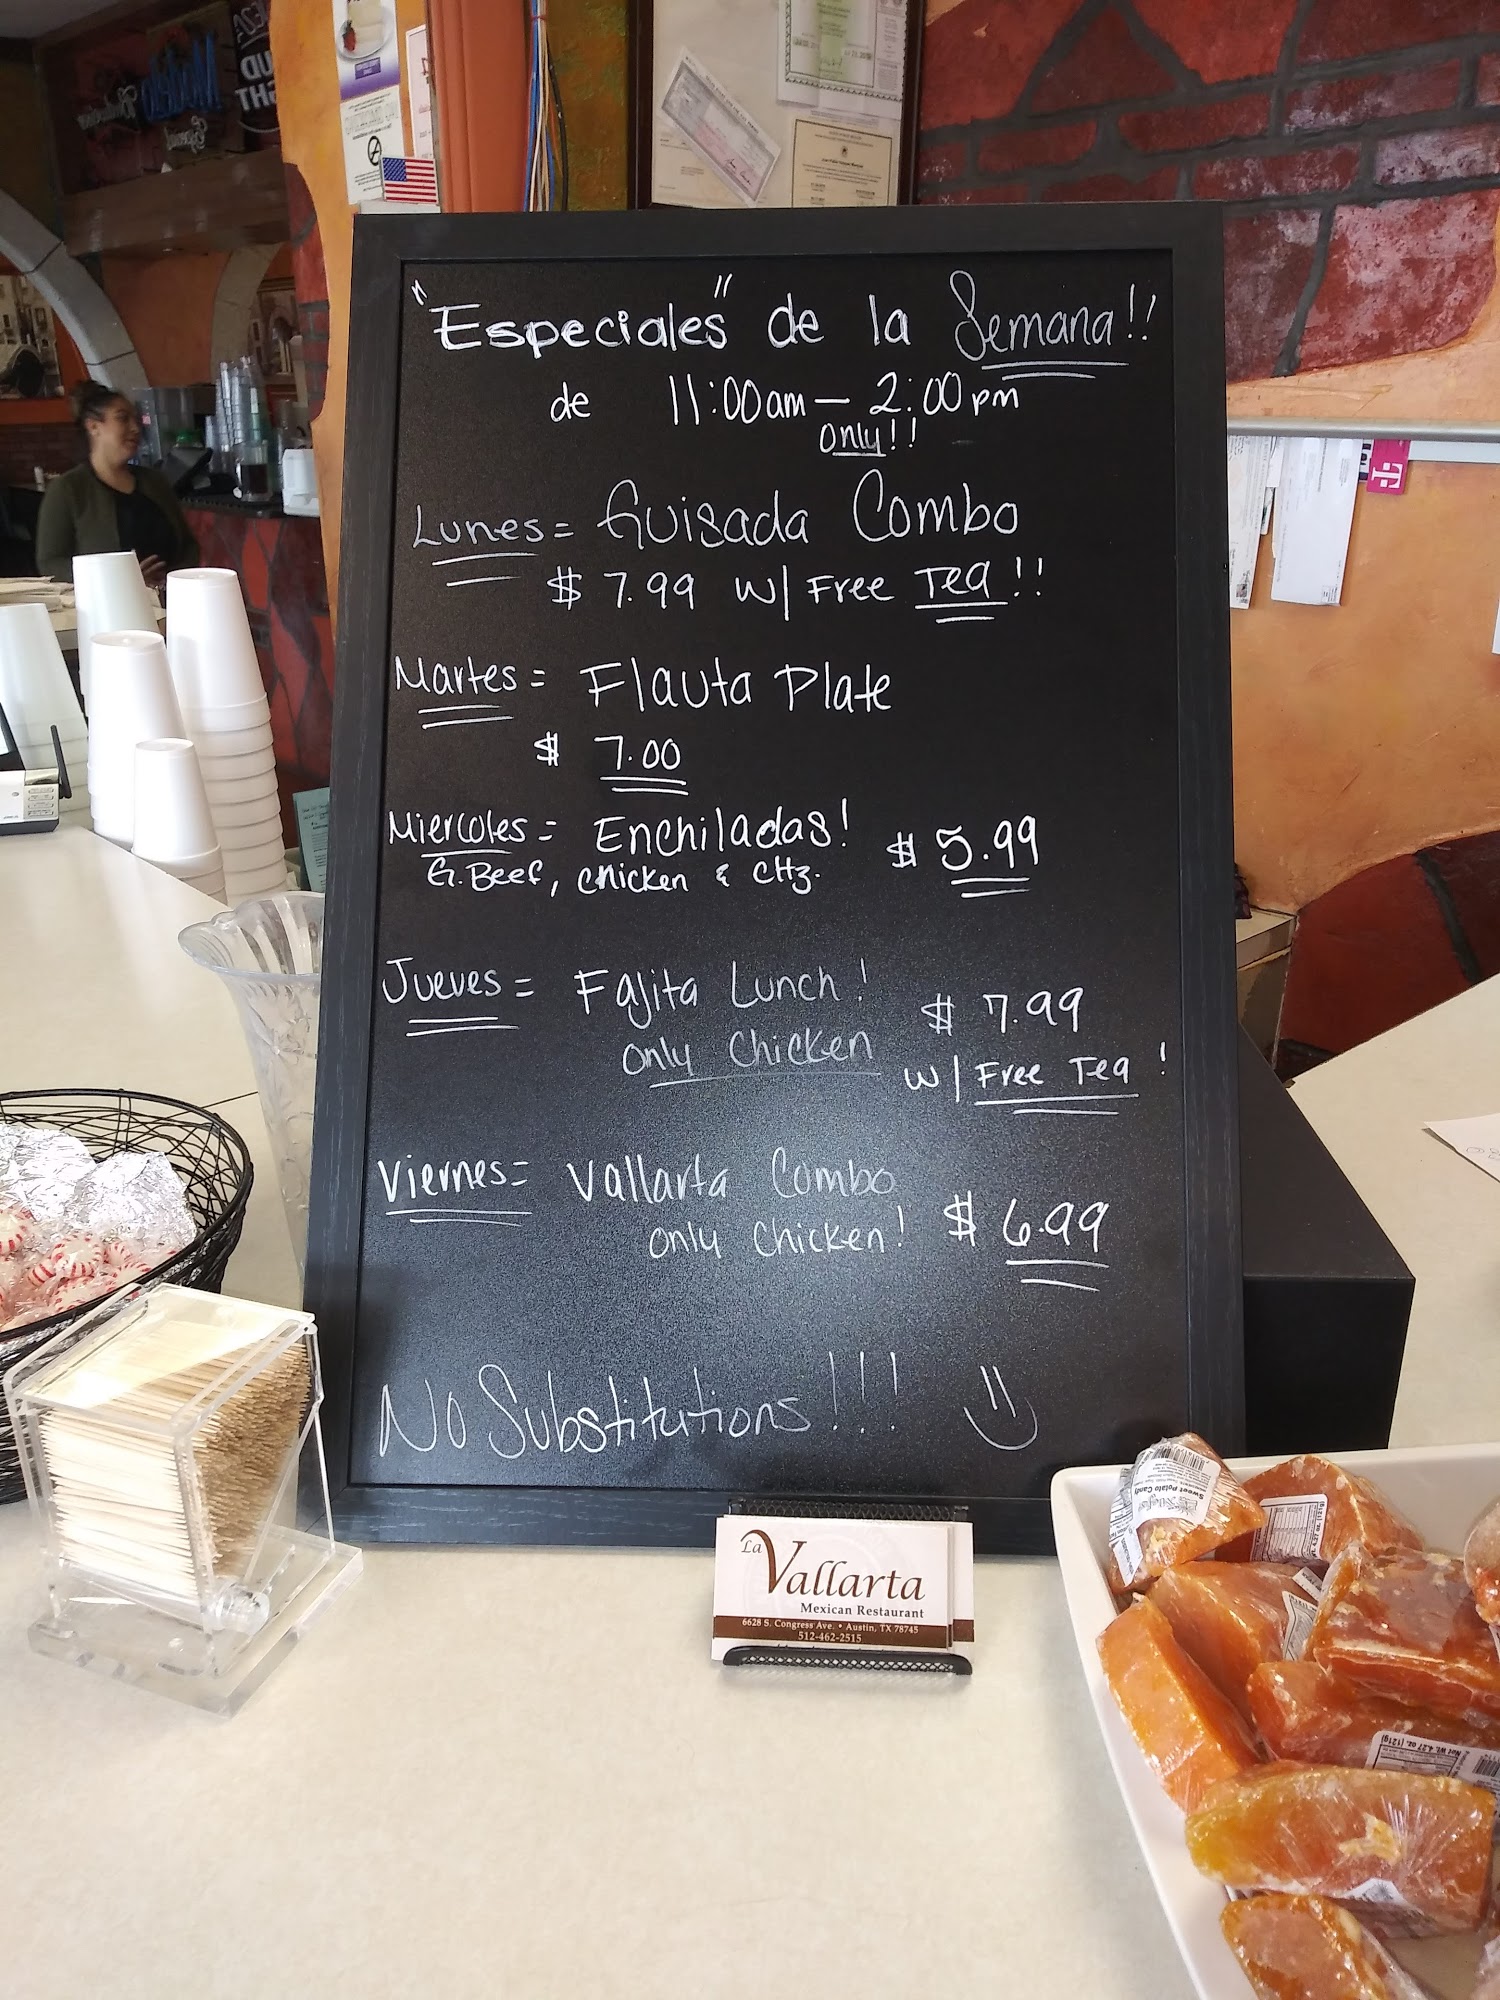 "Especiales" de la Semana!!
de 11:00am — 2:00pm
only!!
Lunes = Guisada Combo
$ 7.99 w/ Free Tea!!
Martes = Flauta Plate
$ 7.00
Miercoles = Enchiladas! $ 5.99
G. Beef, chicken & cHz.
Jueves = Fajita Lunch! $ 7.99
only chicken w/ Free Tea!
Viernes = Vallarta Combo $ 6.99
only chicken!
No Substitutions!!!
La Vallarta
Mexican Restaurant
6628 S. Congress Ave. • Austin, TX 78745
512-462-2515
Sweet Potato Candy
Net Wt. 4.27 oz. (121g)